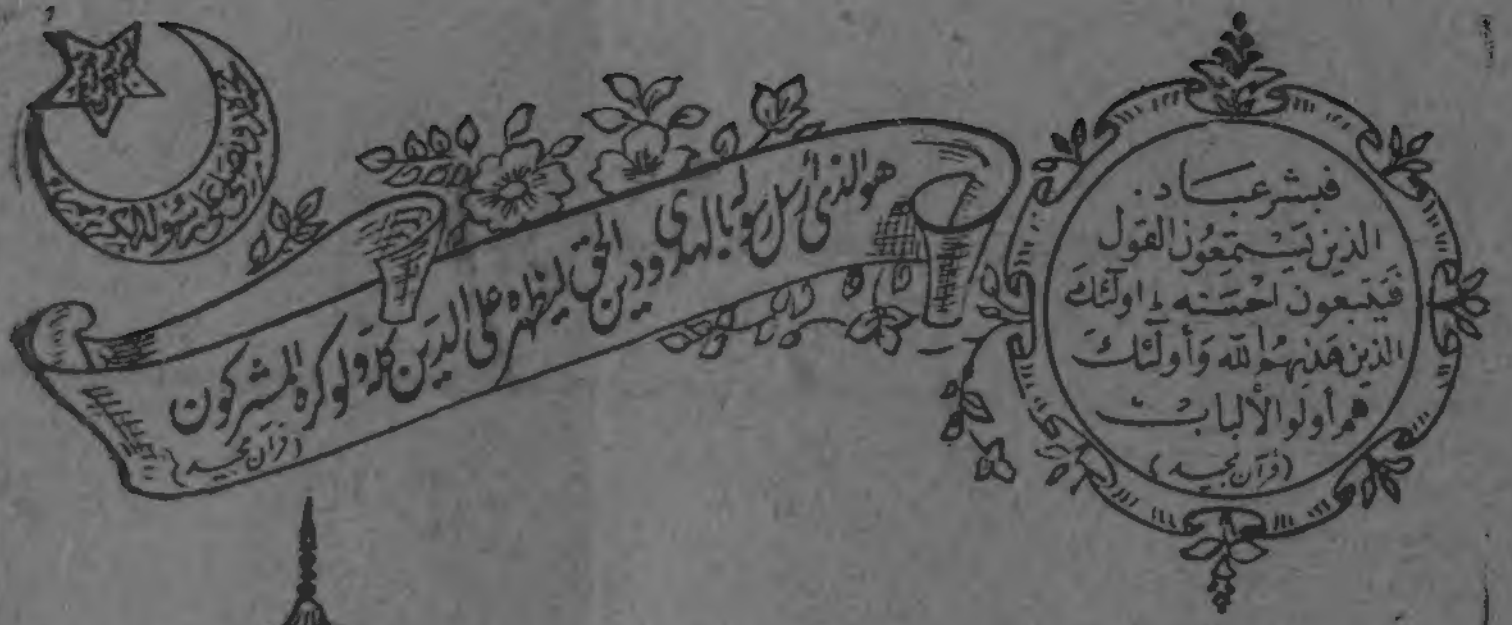 فبشر عباد.
الذين يستمعون القول
فيتبعون احسنه ط اولئك
الذين هدٰىهم الله وأولئك
هم أولو الألباب
(قرآن مجيد)
هو الذى أرسل رسوله بالهدى ودين الحق ليظهره على الدين كله ولو كره المشركون
(قرآن مجيد)
نحمده ونصلى على رسوله الكريم